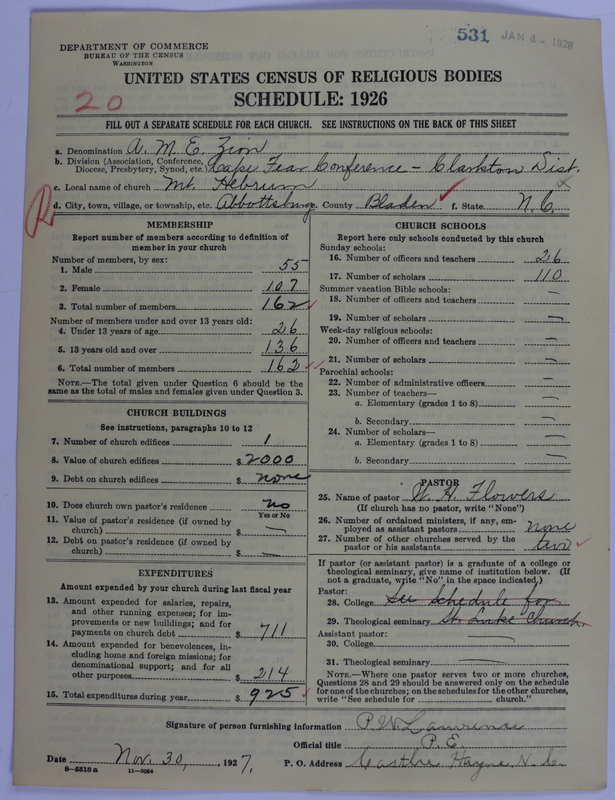 531 JAN 4 - 1928
DEPARTMENT OF COMMERCE
BUREAU OF THE CENSUS
WASHINGTON
UNITED STATES CENSUS OF RELIGIOUS BODIES
20
SCHEDULE: 1926
FILL OUT A SEPARATE SCHEDULE FOR EACH CHURCH. SEE INSTRUCTIONS ON THE BACK OF THIS SHEET
a. Denomination A. M. E. Zion
b. Division (Association, Conference, Diocese, Presbytery, Synod, etc.) Cape Fear Conference - Clarkton Dist.
c. Local name of church Mt. Hebrum
d. City, town, village, or township, etc. Abbottsburg e. County Bladen f. State N. C.
R
MEMBERSHIP
Report number of members according to definition of member in your church
Number of members, by sex:
1. Male 55
2. Female 107
3. Total number of members 162
Number of members under and over 13 years old:
4. Under 13 years of age 26
5. 13 years old and over 136
6. Total number of members 162
NOTE.—The total given under Question 6 should be the
same as the total of males and females given under Question 3.
CHURCH BUILDINGS
See instructions, paragraphs 10 to 12
7. Number of church edifices 1
8. Value of church edifices $ 2000
9. Debt on church edifices $ none
10. Does church own pastor's residence no
Yes or No
11. Value of pastor's residence (if owned by
church) $ —
12. Debt on pastor's residence (if owned by
church) $ —
EXPENDITURES
Amount expended by your church during last fiscal year
13. Amount expended for salaries, repairs,
and other running expenses; for im-
provements or new buildings; and for
payments on church debt $ 711
14. Amount expended for benevolences, in-
cluding home and foreign missions; for
denominational support; and for all
other purposes $ 214
15. Total expenditures during year $ 925
CHURCH SCHOOLS
Report here only schools conducted by this church
Sunday schools:
16. Number of officers and teachers 26
17. Number of scholars 110
Summer vacation Bible schools:
18. Number of officers and teachers —
19. Number of scholars —
Week-day religious schools:
20. Number of officers and teachers —
21. Number of scholars —
Parochial schools:
22. Number of administrative officers —
23. Number of teachers—
a. Elementary (grades 1 to 8) —
b. Secondary —
24. Number of scholars—
a. Elementary (grades 1 to 8) —
b. Secondary —
PASTOR
25. Name of pastor W. H. Flowers
(If church has no pastor, write "None")
26. Number of ordained ministers, if any, em-
ployed as assistant pastors none
27. Number of other churches served by the
pastor or his assistants two
If pastor (or assistant pastor) is a graduate of a college or
theological seminary, give name of institution below. (If
not a graduate, write "No" in the space indicated.)
Pastor:
28. College See Schedule for
29. Theological seminary St. Luke Church.
Assistant pastor:
30. College —
31. Theological seminary —
NOTE.—Where one pastor serves two or more churches,
Questions 28 and 29 should be answered only on the schedule
for one of the churches; on the schedules for the other churches,
write "See schedule for church."
Signature of person furnishing information P. W. Lawrence
Official title P. E.
Date Nov. 30, 1927. P. O. Address Casthe Hayne N. C.
8-5518 a 11-9034